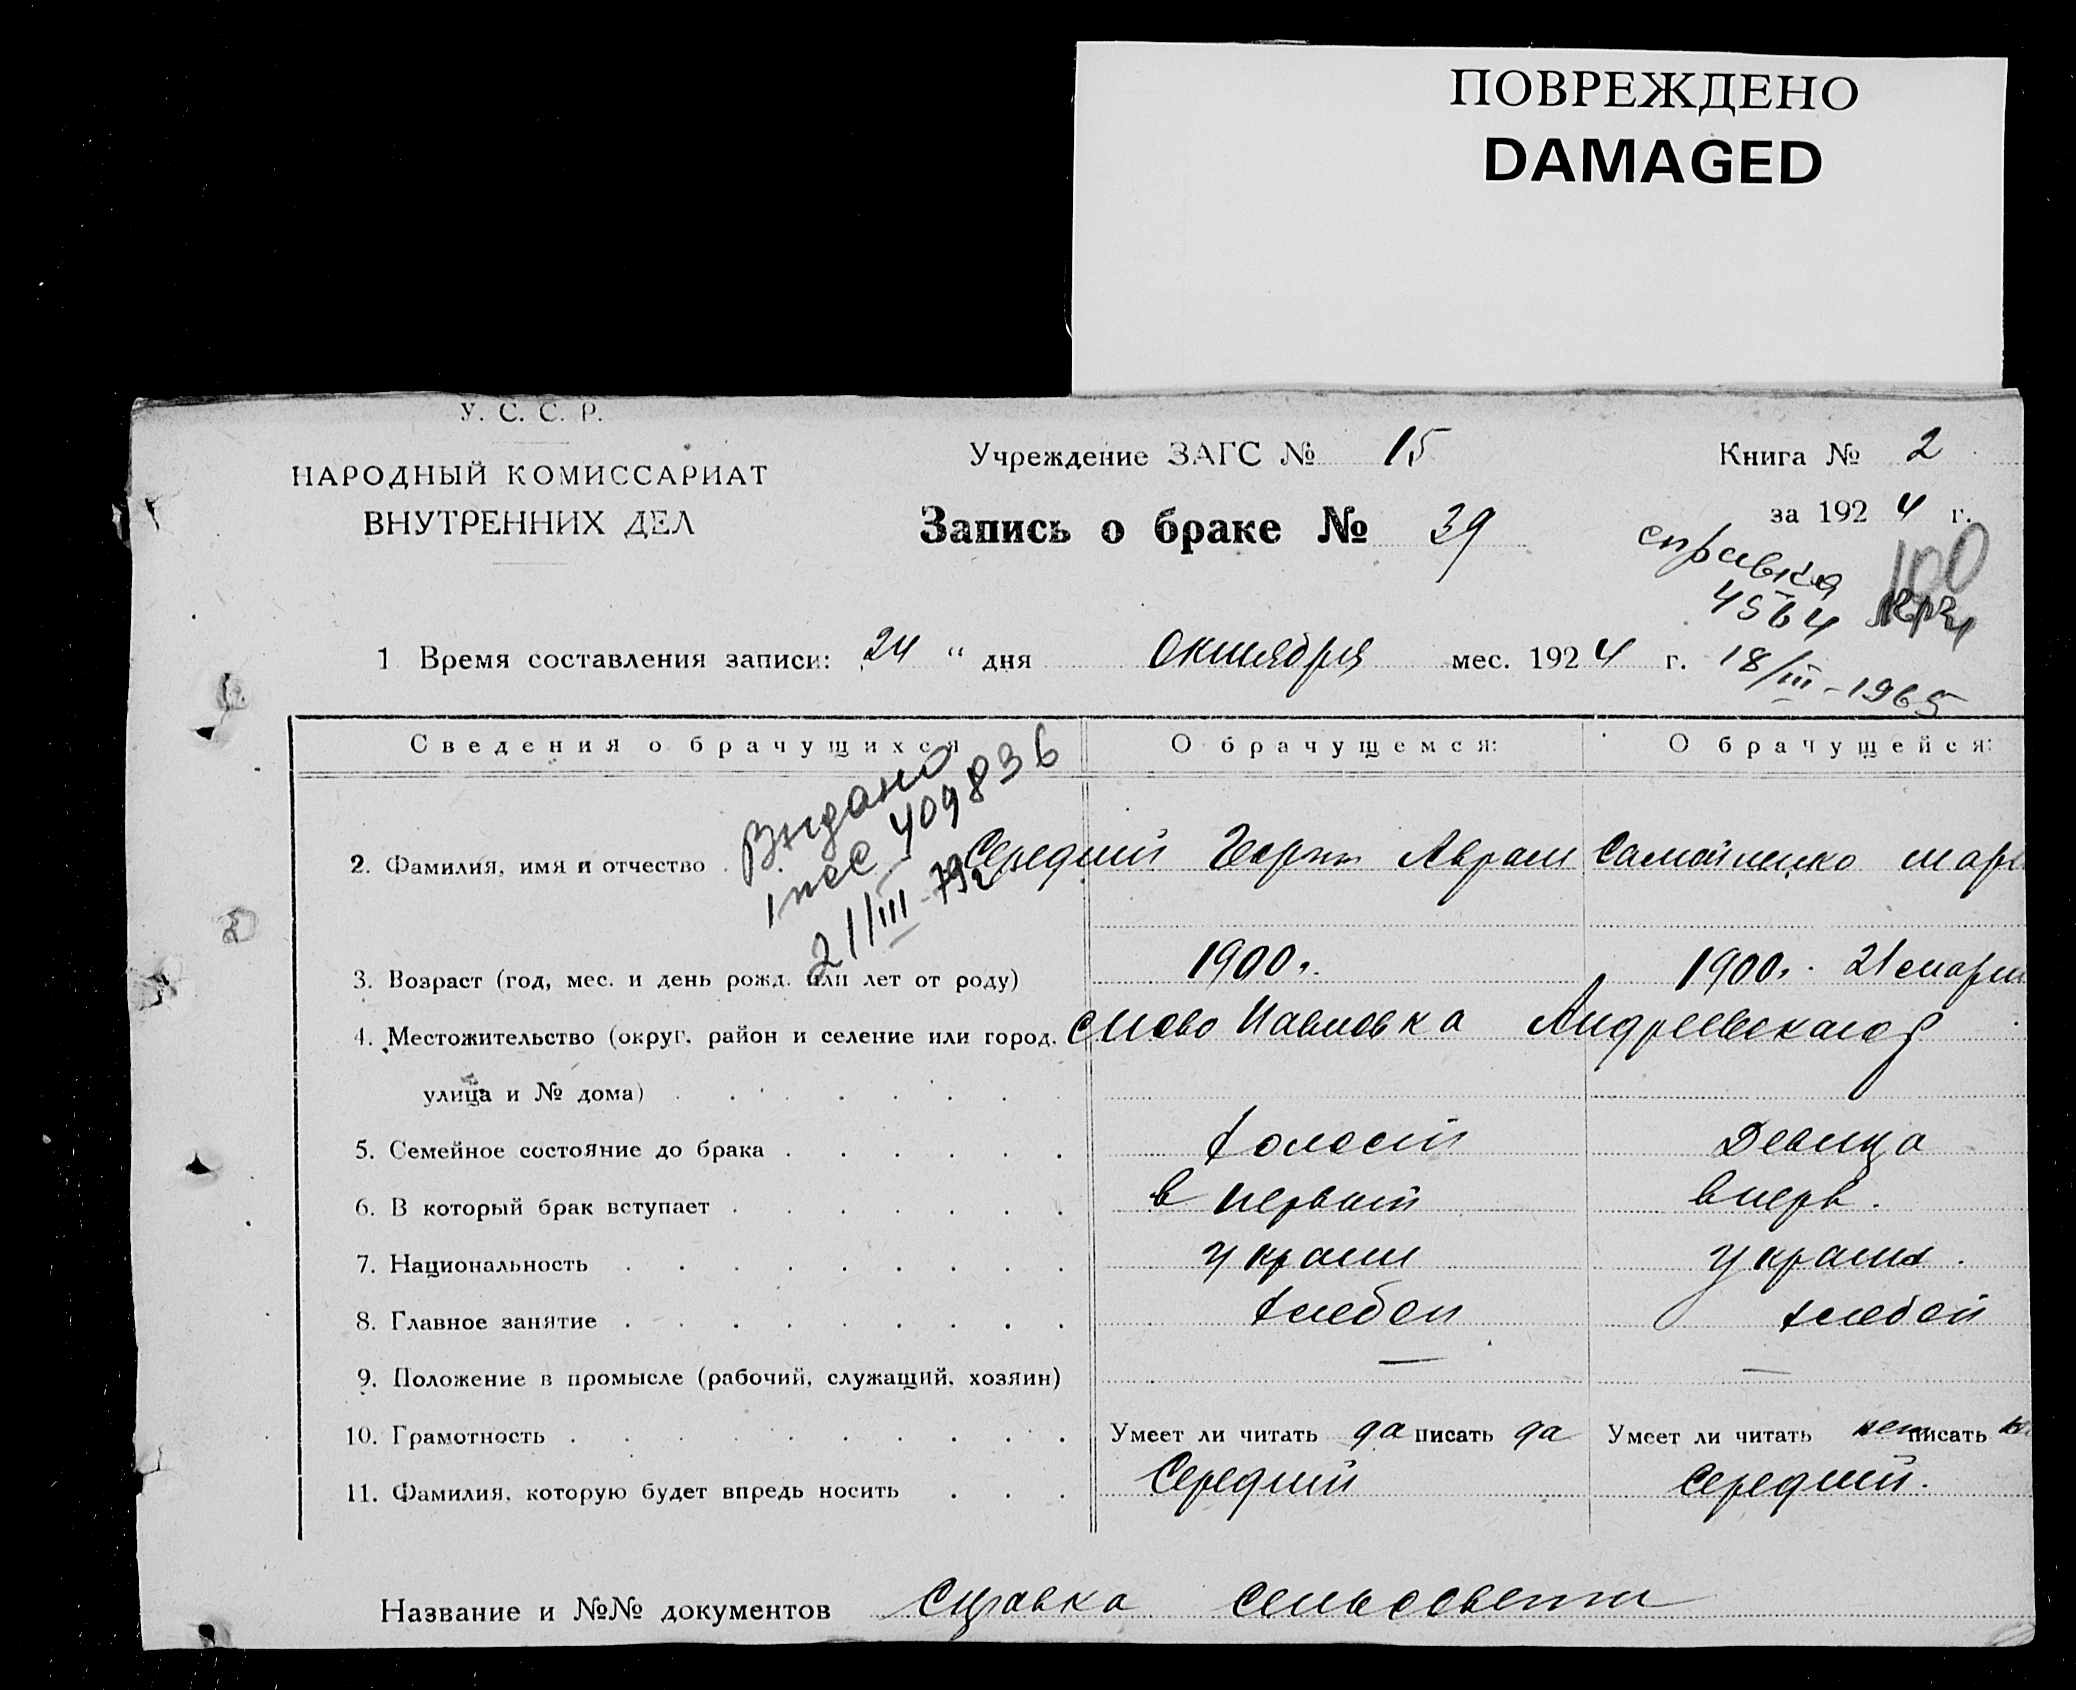 ПОВРЕЖДЕНО
DAMAGED
У. С. С. Р.
НАРОДНЫЙ КОМИССАРИАТ
ВНУТРЕННИХ ДЕЛ
Учреждение ЗАГС № 15
Книга № 2
за 1924 г.
Запись о браке № 39
справка
4564
18/III-1965
100
1 Время составления записи: 24 " дня октября мес. 1924 г.
Сведения о брачущихся
О брачущемся:
О брачущейся:
Выдано
409836
21/III-79г
2. Фамилия, имя и отчество . Середний Аврам Самойленко
3. Возраст (год, мес. и день рожд. или лет от роду) 1900г. 1900г. 21 марта
4. Местожительство (округ, район и селение или город, Ново Павловка
улица и № дома) . . . . . . . .
5. Семейное состояние до брака . . . . . . холост Девица
6. В который брак вступает . . . . . . . в первый вперв.
7. Национальность . . . . . . . . . украин украин.
8. Главное занятие . . . . . . . . . хлебоп хлебоп
9. Положение в промысле (рабочий, служащий, хозяин) — —
10. Грамотность . . . . . . . . . . Умеет ли читать да писать да Умеет ли читать нет писать
11. Фамилия, которую будет впредь носить . . . Середний Середний.
Название и №№ документов Справка сельсовета